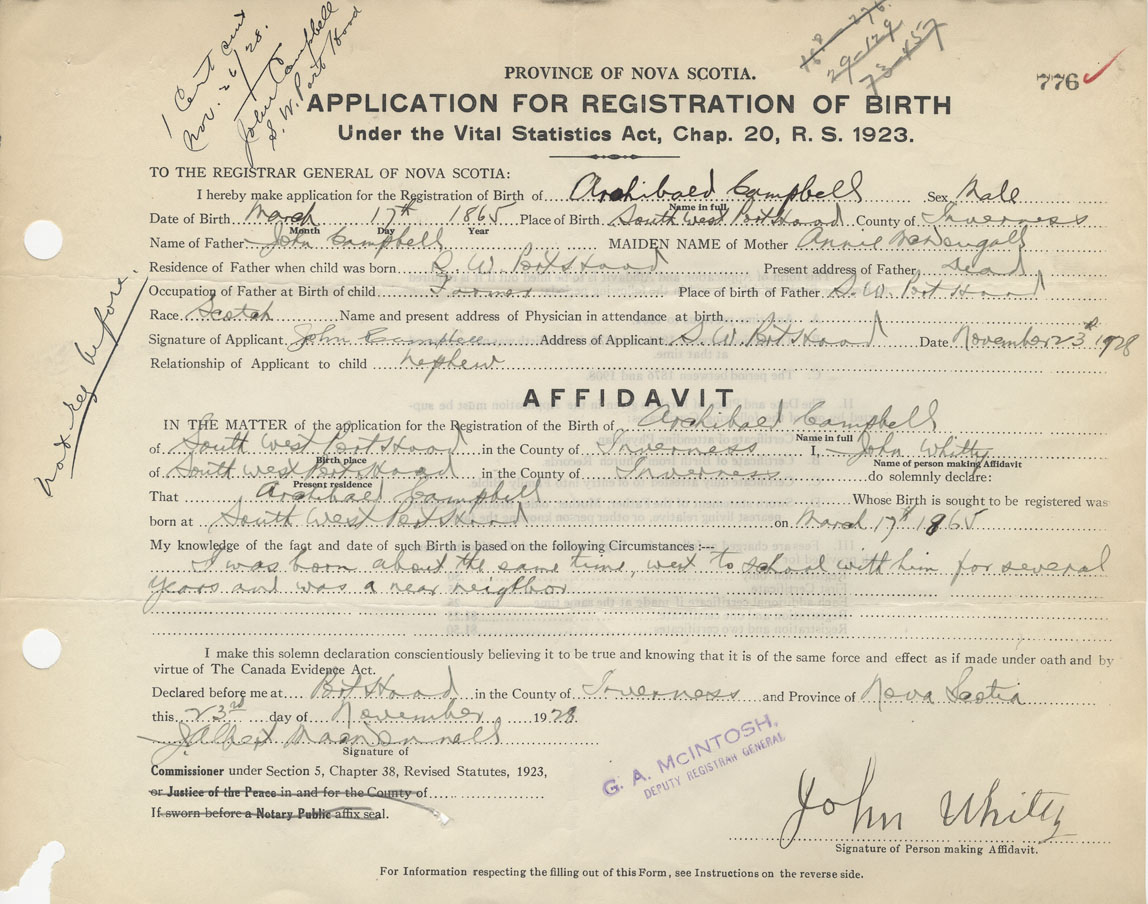 1 Cert sent
Nov. 26/28.
John Campbell
S. W. Port Hood
29-129
73-457
776
PROVINCE OF NOVA SCOTIA.
APPLICATION FOR REGISTRATION OF BIRTH
Under the Vital Statistics Act, Chap. 20, R. S. 1923.
TO THE REGISTRAR GENERAL OF NOVA SCOTIA:
I hereby make application for the Registration of Birth of Archibald Campbell Sex Male
Name in full
Date of Birth March 17th 1865 Place of Birth South West Port Hood County of Inverness
Month Day Year
Name of Father John Campbell MAIDEN NAME of Mother Annie McDougall
Residence of Father when child was born S. W. Port Hood Present address of Father, Dead
Occupation of Father at Birth of child Farmer Place of birth of Father S. W. Port Hood
Race Scotch Name and present address of Physician in attendance at birth
Signature of Applicant John Campbell Address of Applicant S. W. Port Hood Date November 23rd 1928
Relationship of Applicant to child Nephew
not reg before.
AFFIDAVIT
IN THE MATTER of the application for the Registration of the Birth of Archibald Campbell
Name in full
of South West Port Hood in the County of Inverness I, John Whitty
Birth place Name of person making Affidavit
of South West Port Hood in the County of Inverness do solemnly declare:
Present residence
That Archibald Campbell Whose Birth is sought to be registered was
born at South West Port Hood on March 17th 1865
My knowledge of the fact and date of such Birth is based on the following Circumstances :---
I was born about the same time, went to school with him for several
years and was a near neighbor
I make this solemn declaration conscientiously believing it to be true and knowing that it is of the same force and effect as if made under oath and by
virtue of The Canada Evidence Act.
Declared before me at Port Hood in the County of Inverness and Province of Nova Scotia
this 23rd day of November 1928
J Albert MacDonnell
Signature of
Commissioner under Section 5, Chapter 38, Revised Statutes, 1923,
or Justice of the Peace in and for the County of
If sworn before a Notary Public affix seal.
G. A. MCINTOSH,
DEPUTY REGISTRAR GENERAL
John Whitty
Signature of Person making Affidavit.
For Information respecting the filling out of this Form, see Instructions on the reverse side.